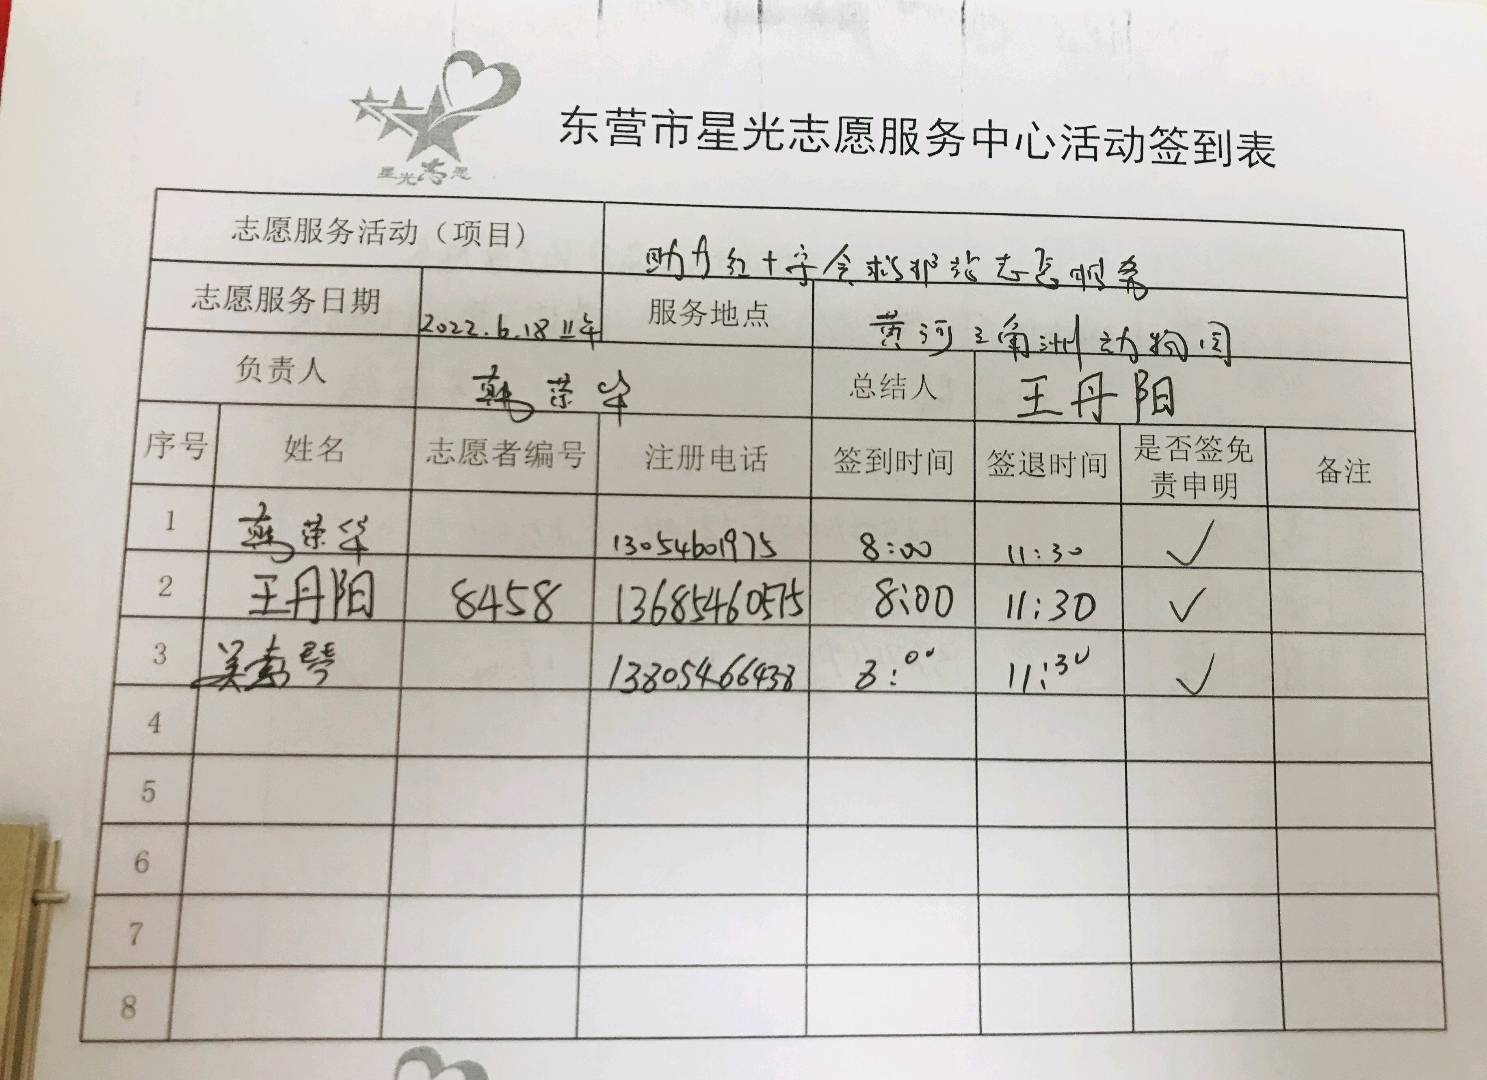 星光志愿
东营市星光志愿服务中心活动签到表
志愿服务活动（项目） 助力红十字会救护站志愿服务
志愿服务日期 2022.6.18上午 服务地点 黄河三角洲动物园
负责人 荣华 总结人 王丹阳
序号 姓名 志愿者编号 注册电话 签到时间 签退时间 是否签免责申明 备注
1 荣华 13054601975 8:00 11:30 ✓
2 王丹阳 8458 13685460575 8:00 11:30 ✓
3 吴 琴 13805466438 8:00 11:30 ✓
4
5
6
7
8